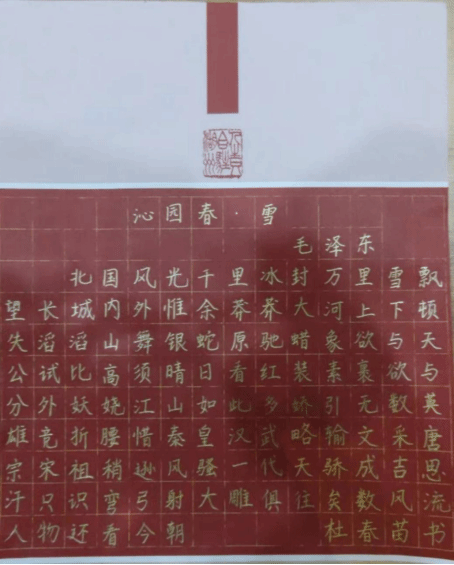 沁园春·雪
毛泽东
北国风光千里冰封万里雪飘
望长城内外惟余莽莽大河上下顿
失滔滔山舞银蛇原驰蜡象欲与天
公试比高须晴日看红装素裹欲与
分外妖娆江山如此多娇引无数英
雄竞折腰惜秦皇汉武略输文采唐
宗宋祖稍逊风骚一代天骄成吉思
汗只识弯弓射大雕俱往矣数风流
人物还看今朝 杜春苗书